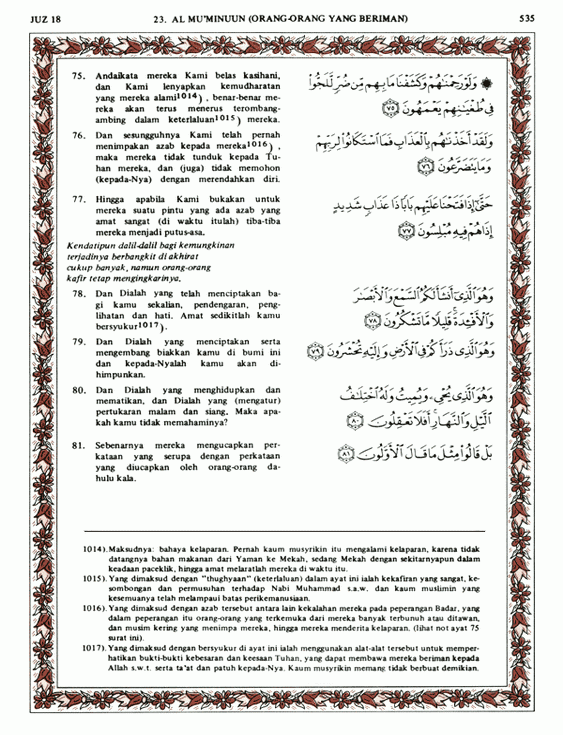 JUZ 18 23. AL MU'MINUUN (ORANG-ORANG YANG BERIMAN) 535
75. Andaikata mereka Kami belas kasihani,
dan Kami lenyapkan kemudharatan
yang mereka alami1014), benar-benar me-
reka akan terus menerus terombang-
ambing dalam keterlaluan1015) mereka.
۞ وَلَوْ رَحِمْنَاهُمْ وَكَشَفْنَا مَا بِهِم مِّن ضُرٍّ لَّلَجُّوا۟
فِى طُغْيَـٰنِهِمْ يَعْمَهُونَ ٧٥
76. Dan sesungguhnya Kami telah pernah
menimpakan azab kepada mereka1016),
maka mereka tidak tunduk kepada Tu-
han mereka, dan (juga) tidak memohon
(kepada-Nya) dengan merendahkan diri.
وَلَقَدْ أَخَذْنَـٰهُم بِٱلْعَذَابِ فَمَا ٱسْتَكَانُوا۟ لِرَبِّهِمْ
وَمَا يَتَضَرَّعُونَ ٧٦
77. Hingga apabila Kami bukakan untuk
mereka suatu pintu yang ada azab yang
amat sangat (di waktu itulah) tiba-tiba
mereka menjadi putus-asa.
حَتَّىٰٓ إِذَا فَتَحْنَا عَلَيْهِم بَابًا ذَا عَذَابٍ شَدِيدٍ
إِذَا هُمْ فِيهِ مُبْلِسُونَ ٧٧
Kendatipun dalil-dalil bagi kemungkinan
terjadinya berbangkit di akhirat
cukup banyak, namun orang-orang
kafir tetap mengingkarinya.
78. Dan Dialah yang telah menciptakan ba-
gi kamu sekalian, pendengaran, peng-
lihatan dan hati. Amat sedikitlah kamu
bersyukur1017).
وَهُوَ ٱلَّذِىٓ أَنشَأَ لَكُمُ ٱلسَّمْعَ وَٱلْأَبْصَـٰرَ
وَٱلْأَفْـِٔدَةَ ۚ قَلِيلًا مَّا تَشْكُرُونَ ٧٨
79. Dan Dialah yang menciptakan serta
mengembang biakkan kamu di bumi ini
dan kepada-Nyalah kamu akan di-
himpunkan.
وَهُوَ ٱلَّذِى ذَرَأَكُمْ فِى ٱلْأَرْضِ وَإِلَيْهِ تُحْشَرُونَ ٧٩
80. Dan Dialah yang menghidupkan dan
mematikan, dan Dialah yang (mengatur)
pertukaran malam dan siang. Maka apa-
kah kamu tidak memahaminya?
وَهُوَ ٱلَّذِى يُحْىِۦ وَيُمِيتُ وَلَهُ ٱخْتِلَـٰفُ
ٱلَّيْلِ وَٱلنَّهَارِ ۚ أَفَلَا تَعْقِلُونَ ٨٠
81. Sebenarnya mereka mengucapkan per-
kataan yang serupa dengan perkataan
yang diucapkan oleh orang-orang da-
hulu kala.
بَلْ قَالُوا۟ مِثْلَ مَا قَالَ ٱلْأَوَّلُونَ ٨١
1014). Maksudnya: bahaya kelaparan. Pernah kaum musyrikin itu mengalami kelaparan, karena tidak
datangnya bahan makanan dari Yaman ke Mekah, sedang Mekah dengan sekitarnyapun dalam
keadaan paceklik, hingga amat melaratlah mereka di waktu itu.
1015). Yang dimaksud dengan "thughyaan" (keterlaluan) dalam ayat ini ialah kekafiran yang sangat, ke-
sombongan dan permusuhan terhadap Nabi Muhammad s.a.w. dan kaum muslimin yang
kesemuanya telah melampaui batas perikemanusiaan.
1016). Yang dimaksud dengan azab tersebut antara lain kekalahan mereka pada peperangan Badar, yang
dalam peperangan itu orang-orang yang terkemuka dari mereka banyak terbunuh atau ditawan,
dan musim kering yang menimpa mereka, hingga mereka menderita kelaparan. (lihat not ayat 75
surat ini).
1017). Yang dimaksud dengan bersyukur di ayat ini ialah menggunakan alat-alat tersebut untuk memper-
hatikan bukti-bukti kebesaran dan keesaan Tuhan, yang dapat membawa mereka beriman kepada
Allah s.w.t. serta ta'at dan patuh kepada-Nya. Kaum musyrikin memang tidak berbuat demikian.